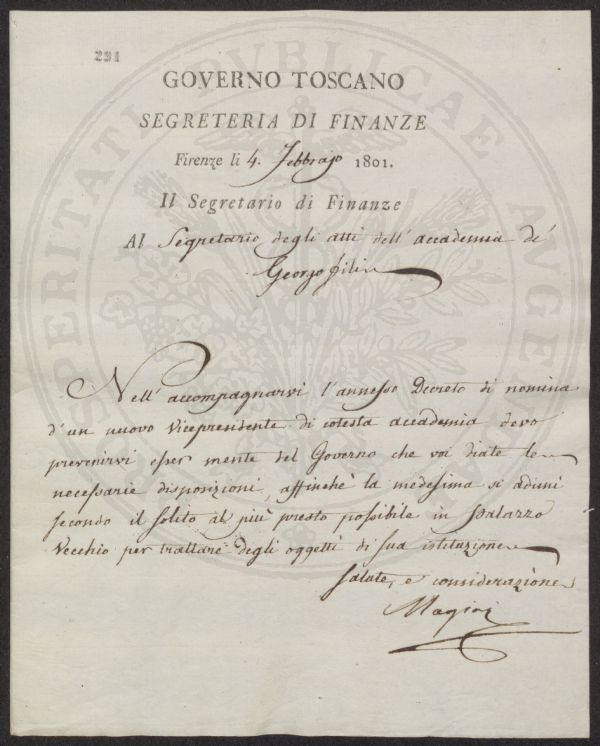 291
GOVERNO TOSCANO
SEGRETERIA DI FINANZE
Firenze li 4. Febbrajo 1801.
Il Segretario di Finanze
Al Segretario degli atti dell' accademia de'
Georgofili
Nell' accompagnarvi l'annesso Decreto di nomina
d'un nuovo Vicepresidente di cotesta accademia devo
prevenirvi esser mente del Governo che voi diate le
necessarie disposizioni, affinchè la medesima si aduni
secondo il solito al più presto possibile in Palazzo
Vecchio per trattare degli oggetti di sua istituzione
Salute, e considerazione
PROSPERITATI PUBLICAE AUGENDAE